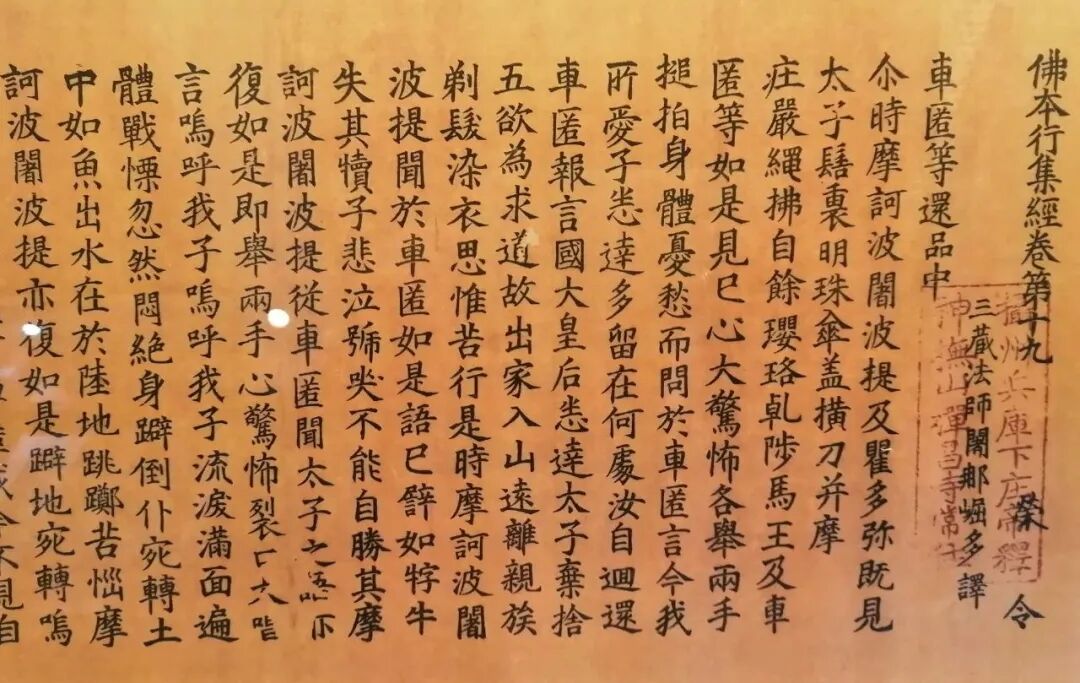 佛本行集經卷第十九 令
三藏法師闍那崛多譯
攝州兵庫下庄帝釋
神撫山禪昌寺常住
車匿等還品中
尒時摩訶波闍波提及瞿多弥既見
太子髻裏明珠傘盖橫刀并摩
庄嚴繩拂自餘瓔珞乹陟馬王及車
匿等如是見已心大驚怖各舉兩手
搥拍身體憂愁而問於車匿言今我
所愛子悉達多留在何處汝自迴還
車匿報言國大皇后悉達太子棄捨
五欲為求道故出家入山遠離親族
剃髮染衣思惟苦行是時摩訶波闍
波提聞於車匿如是語已譬如牸牛
失其犢子悲泣號哭不能自勝其摩
訶波闍波提從車匿聞太子之
復如是即舉兩手心驚怖裂
言嗚呼我子嗚呼我子流淚滿面遍
體戰慄忽然悶絕身躃倒仆宛轉土
中如魚出水在於陸地跳躑苦惱摩
訶波闍波提亦復如是躃地宛轉嗚
我今不見自